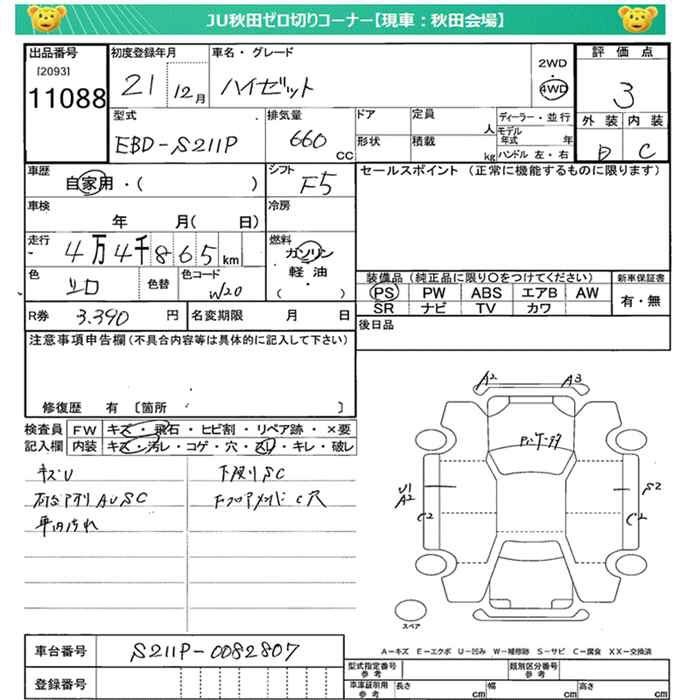 JU秋田ゼロ切りコーナー【現車：秋田会場】
出品番号
[2093]
11088
初度登録年月
21
12月
車名・グレード
ハイゼット
2WD
・
4WD
評価点
3
型式
EBD-S211P
排気量
660
CC
ドア
定員
人
形状
積載
kg
ディーラー・並行
モデル年式
年
ハンドル 左・右
外装
内装
D
C
車歴
自家用・(　　)
シフト
F5
セールスポイント (正常に機能するものに限ります)
車検
年　月(　日)
冷房
走行
4万4千865km
燃料
ガソリン
軽油
(　　)
色
シロ
色替
色コード
W20
装備品 (純正品に限り○をつけてください)
新車保証書
PS PW ABS エアB AW
SR ナビ TV カワ
有・無
R券
3.390円
名変期限
月　日
後日品
注意事項申告欄(不具合内容等は具体的に記入して下さい)
修復歴 有 〔箇所　　〕
検査員記入欄
FW
キズ・飛石・ヒビ割・リペア跡・×要
内装
キズ・汚レ・コゲ・穴・スレ・キレ・破レ
キズU
AUSC
下廻りSC
C穴
A2
A3
U1
A2
C2
S2
C2
スペア
A－キズ E－エクボ U－凹み W－補修跡 S－サビ C－腐食 XX－交換済
車台番号
S211P-0082807
登録番号
型式指定番号
参考
類別区分番号
参考
車庫証明用
参考
長さ
cm
幅
cm
高さ
cm